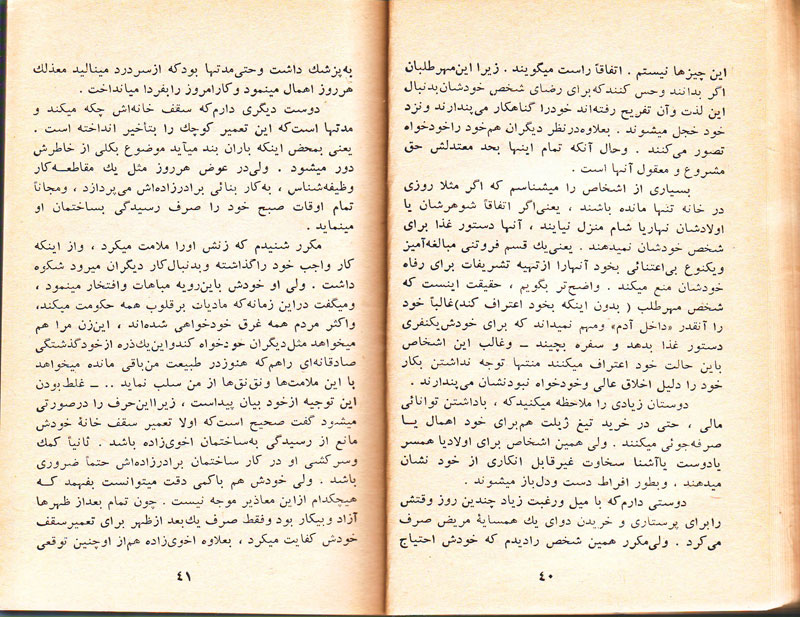 این چیزها نیستم . اتفاقاً راست میگویند . زیرا این مهرطلبان
اگر بدانند وحس کنند که برای رضای شخص خودشان بدنبال
این لذت وآن تفریح رفته‌اند خودرا گناهکار می‌پندارند ونزد
خود خجل میشوند . بعلاوه درنظر دیگران هم خود راخودخواه
تصور می‌کنند . وحال آنکه تمام اینها بحد معتدلش حق
مشروع و معقول آنها است .
بسیاری از اشخاص را میشناسم که اگر مثلا روزی
در خانه تنها مانده باشند ، یعنی اگر اتفاقاً شوهرشان یا
اولادشان نهار یا شام منزل نیایند ، آنها دستور غذا برای
شخص خودشان نمیدهند . یعنی یك قسم فروتنی مبالغه‌آمیز
ویکنوع بی‌اعتنائی بخود آنهارا ازتهیه تشریفات برای رفاه
خودشان منع میکند . واضح‌تر بگویم ، حقیقت اینست که
شخص مهرطلب ( بدون اینکه بخود اعتراف کند) غالباً خود
را آنقدر «داخل آدم» ومهم نمیداند که برای خودش یکنفری
دستور غذا بدهد و سفره بچیند – وغالب این اشخاص
باین حالت خود اعتراف میکنند منتها توجه نداشتن بکار
خود را دلیل اخلاق عالی وخودخواه نبودنشان می‌پندارند .
دوستان زیادی را ملاحظه میکنید که ، باداشتن توانائی
مالی ، حتی در خرید تیغ ژیلت هم برای خود اهمال یـا
صرفه‌جوئی میکنند . ولی همین اشخاص برای اولاد یا همسر
یادوست یاآشنا سخاوت غیرقابل انکاری از خود نشان
میدهند ، وبطور افراط دست ودل‌باز میشوند .
دوستی دارم که با میل ورغبت زیاد چندین روز وقتش
رابرای پرستاری و خریدن دوای یك همسایهٔ مریض صرف
می‌کرد . ولی مکرر همین شخص رادیدم که خودش احتیاج
٤٠
به پزشك داشت وحتی مدتها بود که ازسردرد مینالید معذلك
هرروز اهمال مینمود وکار امروز رابفردا میانداخت .
دوست دیگری دارم که سقف خانه‌اش چکه میکند و
مدتها است که این تعمیر کوچك را بتأخیر انداخته است .
یعنی بمحض اینکه باران بند میآید موضوع بکلی از خاطرش
دور میشود . ولی در عوض هرروز مثل یك مقاطعـه‌کار
وظیفه‌شناس ، به کار بنائی برادرزاده‌اش می‌پردازد ، ومجاناً
تمام اوقات صبح خود را صرف رسیدگی بساختمان او
مینماید .
مکرر شنیدم که زنش اورا ملامت میکرد ، واز اینکه
کار واجب خود را گذاشته وبدنبال کار دیگران میرود شکوه
داشت . ولی او خودش باین رویه مباهات وافتخار مینمود ،
ومیگفت دراین زمانه که مادیات برقلوب همه حکومت میکند،
واکثر مردم همه غرق خودخواهی شده‌اند ، این زن مرا هم
میخواهد مثل دیگران خودخواه کند واین یك ذره از خودگذشتگی
صادقانه‌ای راهم که هنوز در طبیعت من باقی مانده میخواهد
با این ملامت‌ها ونق‌نق‌ها از من سلب نماید .. – غلط بودن
این توجیه ازخود بیان پیداست ، زیرا این حرف را درصورتی
میشود گفت صحیح است که اولا تعمیر سقف خانهٔ خودش
مانع از رسیدگی به ساختمان اخوی‌زاده باشد . ثانیاً کمك
وسرکشی او در کار ساختمان برادرزاده‌اش حتماً ضروری
باشد . ولی خودش هم باکمی دقت میتوانست بفهمد کـه
هیچکدام ازاین معاذیر موجه نیست . چون تمام بعداز ظهرها
آزاد وبیکار بود وفقط صرف یك بعد ازظهر برای تعمیر سقف
خودش کفایت میکرد ، بعلاوه اخوی‌زاده هم از او چنین توقعی
٤١